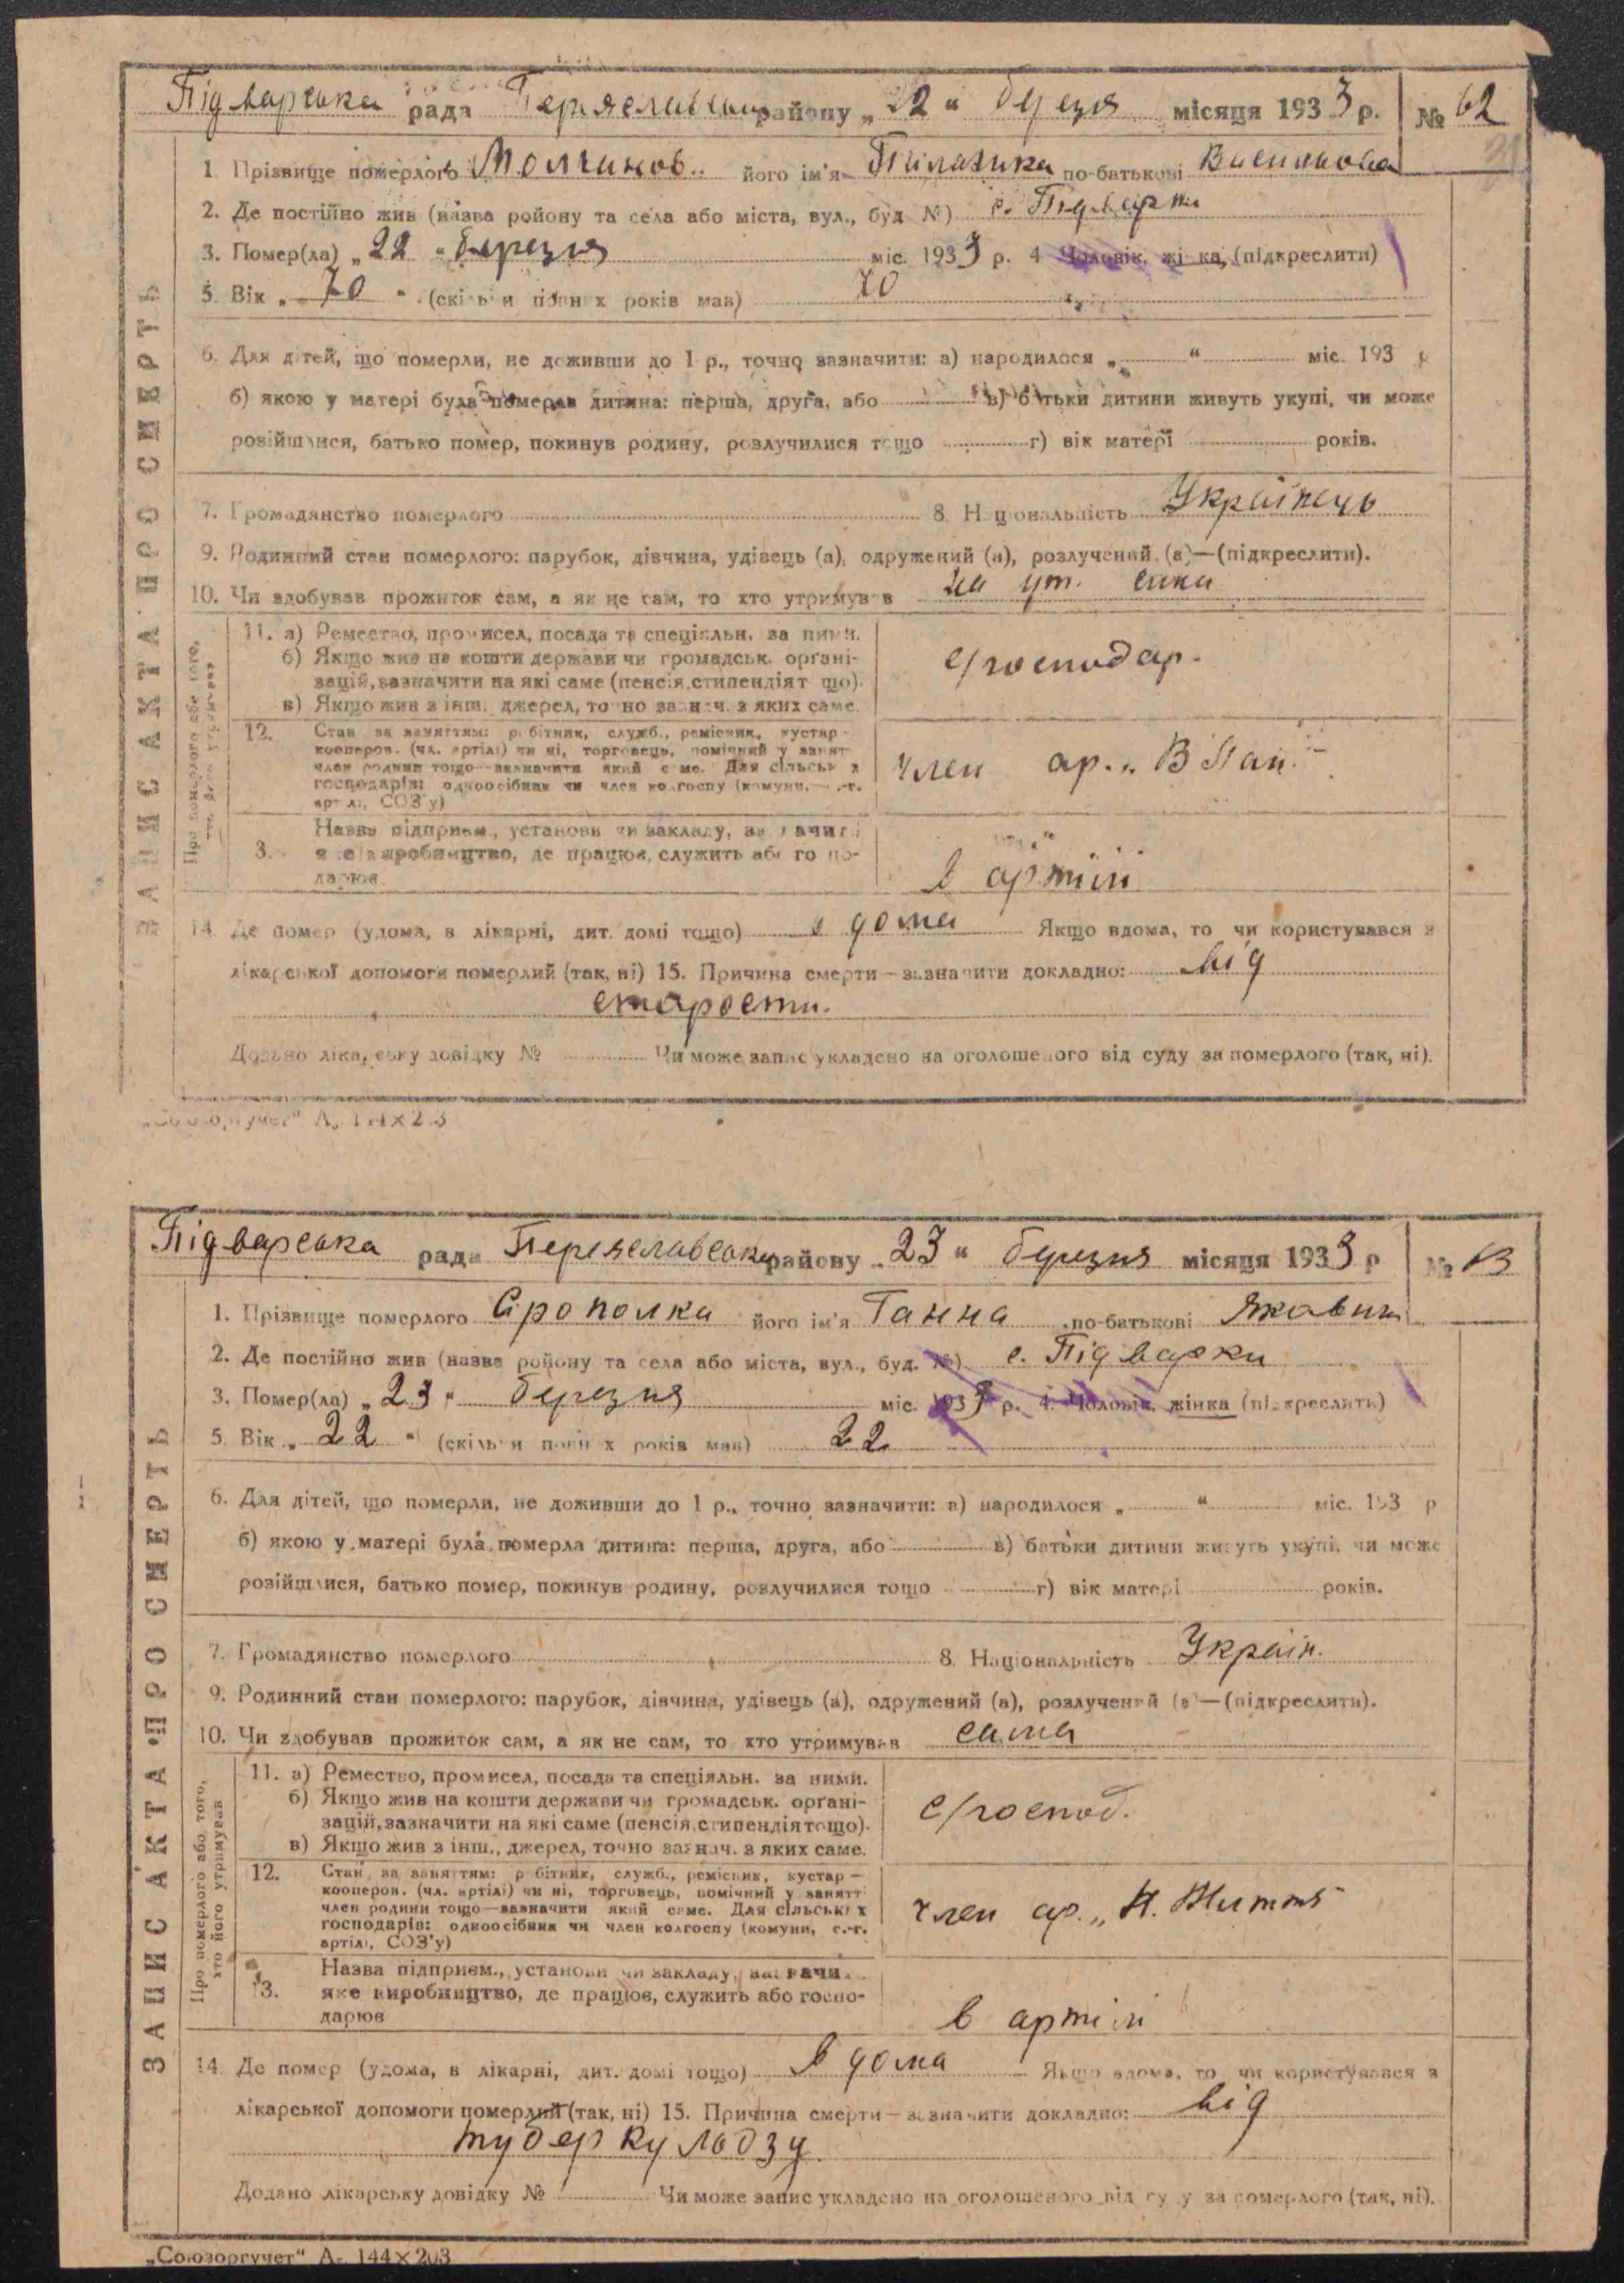 Підварська рада Переяславськ району „22“ березня місяця 1933 р. № 62
ЗАПИС АКТА ПРО СМЕРТЬ
1. Прізвище померлого Молчанов його ім'я по-батькові
2. Де постійно жив (назва ройону та села або міста, вул., буд. №) с. Підварки
3. Помер(ла) „22“ березня міс. 1933 р. 4 Чоловік, жінка, (підкреслити)
5. Вік „70“ (скільки повних років мав) 70
6. Для дітей, що померли, не доживши до 1 р., точно зазначити: а) народилося „ “ міс. 193 р
б) якою у матері була померла дитина: перша, друга, або в) батьки дитини живуть укупі, чи може
розійшлися, батько помер, покинув родину, розлучилися тощо г) вік матері років.
7. Громадянство померлого 8. Національність Українець
9. Родинний стан померлого: парубок, дівчина, удівець (а), одружений (а), розлучений (а)—(підкреслити).
10. Чи здобував прожиток сам, а як не сам, то хто утримував на ут. сина
Про померлого або того, хто його утримував
11. а) Ремество, промисел, посада та спеціяльн. за ними.
б) Якщо жив на кошти держави чи громадськ. орґані-
зацій, зазначити на які саме (пенсія, стипендіят що).
в) Якщо жив з інш. джерел, точно зазнач. з яких саме.
с/господар.
12. Стан за заняттям: робітник, служб., ремісник, кустар—
кооперов. (чл. артілі) чи ні, торговець, помічний у занят
член родини тощо—зазначити який саме. Для сільськ х
господарів: одноосібник чи член колгоспу (комуни, с.-г.
артілі, СОЗ'у)
член ар. „
13. Назва підприєм., установи чи закладу, зазначити
яке виробництво, де працює, служить або госпо-
дарює.
в артілі
14. Де помер (удома, в лікарні, дит. домі тощо) в дома Якщо вдома, то чи користувався з
лікарської допомоги померлий (так, ні) 15. Причина смерти—зазначити докладно: від
старости.
Додано лікарську довідку № Чи може запис укладено на оголошеного від суду за померлого (так, ні).
„Союзоргучет“ А₅ 144×203
Підварська рада Переяславська району „23“ березня місяця 1933 р № 63
ЗАПИС АКТА ПРО СМЕРТЬ
1. Прізвище померлого Сірополка його ім'я Ганна по-батькові
2. Де постійно жив (назва ройону та села або міста, вул., буд. №) с. Підварки
3. Помер(ла) „23“ березня міс. 1933 р. 4. Чоловік, жінка (підкреслить)
5. Вік „22“ (скільки повних років мав) 22
6. Для дітей, що померли, не доживши до 1 р., точно зазначити: а) народилося „ “ міс. 193 р
б) якою у матері була померла дитина: перша, друга, або в) батьки дитини живуть укупі, чи може
розійшлися, батько помер, покинув родину, розлучилися тощо г) вік матері років.
7. Громадянство померлого 8. Національність Україн.
9. Родинний стан померлого: парубок, дівчина, удівець (а), одружений (а), розлучений (а)—(підкреслити).
10. Чи здобував прожиток сам, а як не сам, то хто утримував сама
Про померлого або того, хто його утримував
11. а) Ремество, промисел, посада та спеціяльн. за ними.
б) Якщо жив на кошти держави чи громадськ. орґані-
зацій, зазначити на які саме (пенсія, стипендія тощо).
в) Якщо жив з інш., джерел, точно зазнач. з яких саме.
с/господ.
12. Стан за заняттям: робітник, служб., ремісник, кустар—
кооперов. (чл. артілі) чи ні, торговець, помічний у занятт
член родини тощо—зазначити який саме. Для сільських
господарів: одноосібник чи член колгоспу (комуни, с.-г.
артілі, СОЗ'у)
член ар. „Н. Життя
13. Назва підприєм., установи чи закладу, зазначити
яке виробництво, де працює, служить або госпо-
дарює
в артілі
14. Де помер (удома, в лікарні, дит. домі тощо) в дома Якщо вдома, то чи користувався з
лікарської допомоги померлий (так, ні) 15. Причина смерти—зазначити докладно: від
туберкульозу.
Додано лікарську довідку № Чи може запис укладено на оголошеного від суду за померлого (так, ні).
„Союзоргучет“ А₅ 144×203